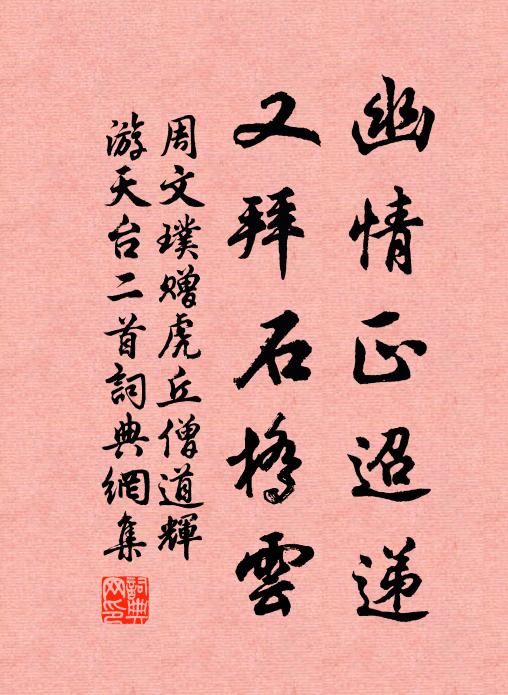 幽情正迢递
又拜石桥雲
周文璞赠虎丘僧道輝
游天台二首詞典網集
詞典网印